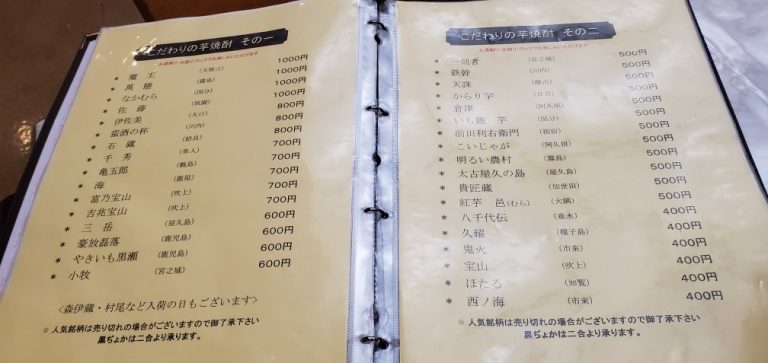 こだわりの芋焼酎 その一
お湯割り・水割り・ロックでお楽しみいただけます
* 魔王 (大根占) 1000円
* 萬膳 (霧島) 1000円
* なかむら (国分) 1000円
* 佐藤 (牧園) 1000円
* 伊佐美 (大口) 800円
* 蛮酒の杯 (川内) 800円
* 石蔵 (姶良) 800円
* 千秀 (隼人) 800円
* 亀五郎 (甑島) 700円
* 海 (鹿屋) 700円
* 富乃宝山 (吹上) 700円
* 吉兆宝山 (吹上) 700円
* 三岳 (屋久島) 600円
* 豪放磊落 (鹿児島) 600円
* やきいも黒瀬 (鹿児島) 600円
* 小牧 (宮之城) 600円
〈森伊蔵・村尾など入荷の日もございます〉
☆ 人気銘柄は売り切れの場合がございますので御了承下さい
黒ぢょかは二合より承ります。
こだわりの芋焼酎 その二
お湯割り・水割り・ロックでお楽しみいただけます
* 一刻者 (宮之城) 500円
* 鉄幹 (川内) 500円
* 天誅 (種子) 500円
* からり芋 500円
* 倉津 (阿久根) 500円
* いも麹 芋 (国分) 500円
* 前田利右衛門 (指宿) 500円
* こいじゃが (阿久根) 500円
* 明るい農村 (霧島) 500円
* 太古屋久の島 (屋久島) 500円
* 貴匠蔵 (加世田) 500円
* 紅芋 邑(むら) (大隅) 500円
* 八千代伝 (垂水) 400円
* 久耀 (種子島) 400円
* 鬼火 (市来) 400円
* 宝山 (吹上) 400円
* ほたる (知覧) 400円
* 西ノ海 (市来) 400円
☆ 人気銘柄は売り切れの場合がございますので御了承下さい
黒ぢょかは二合より承ります。